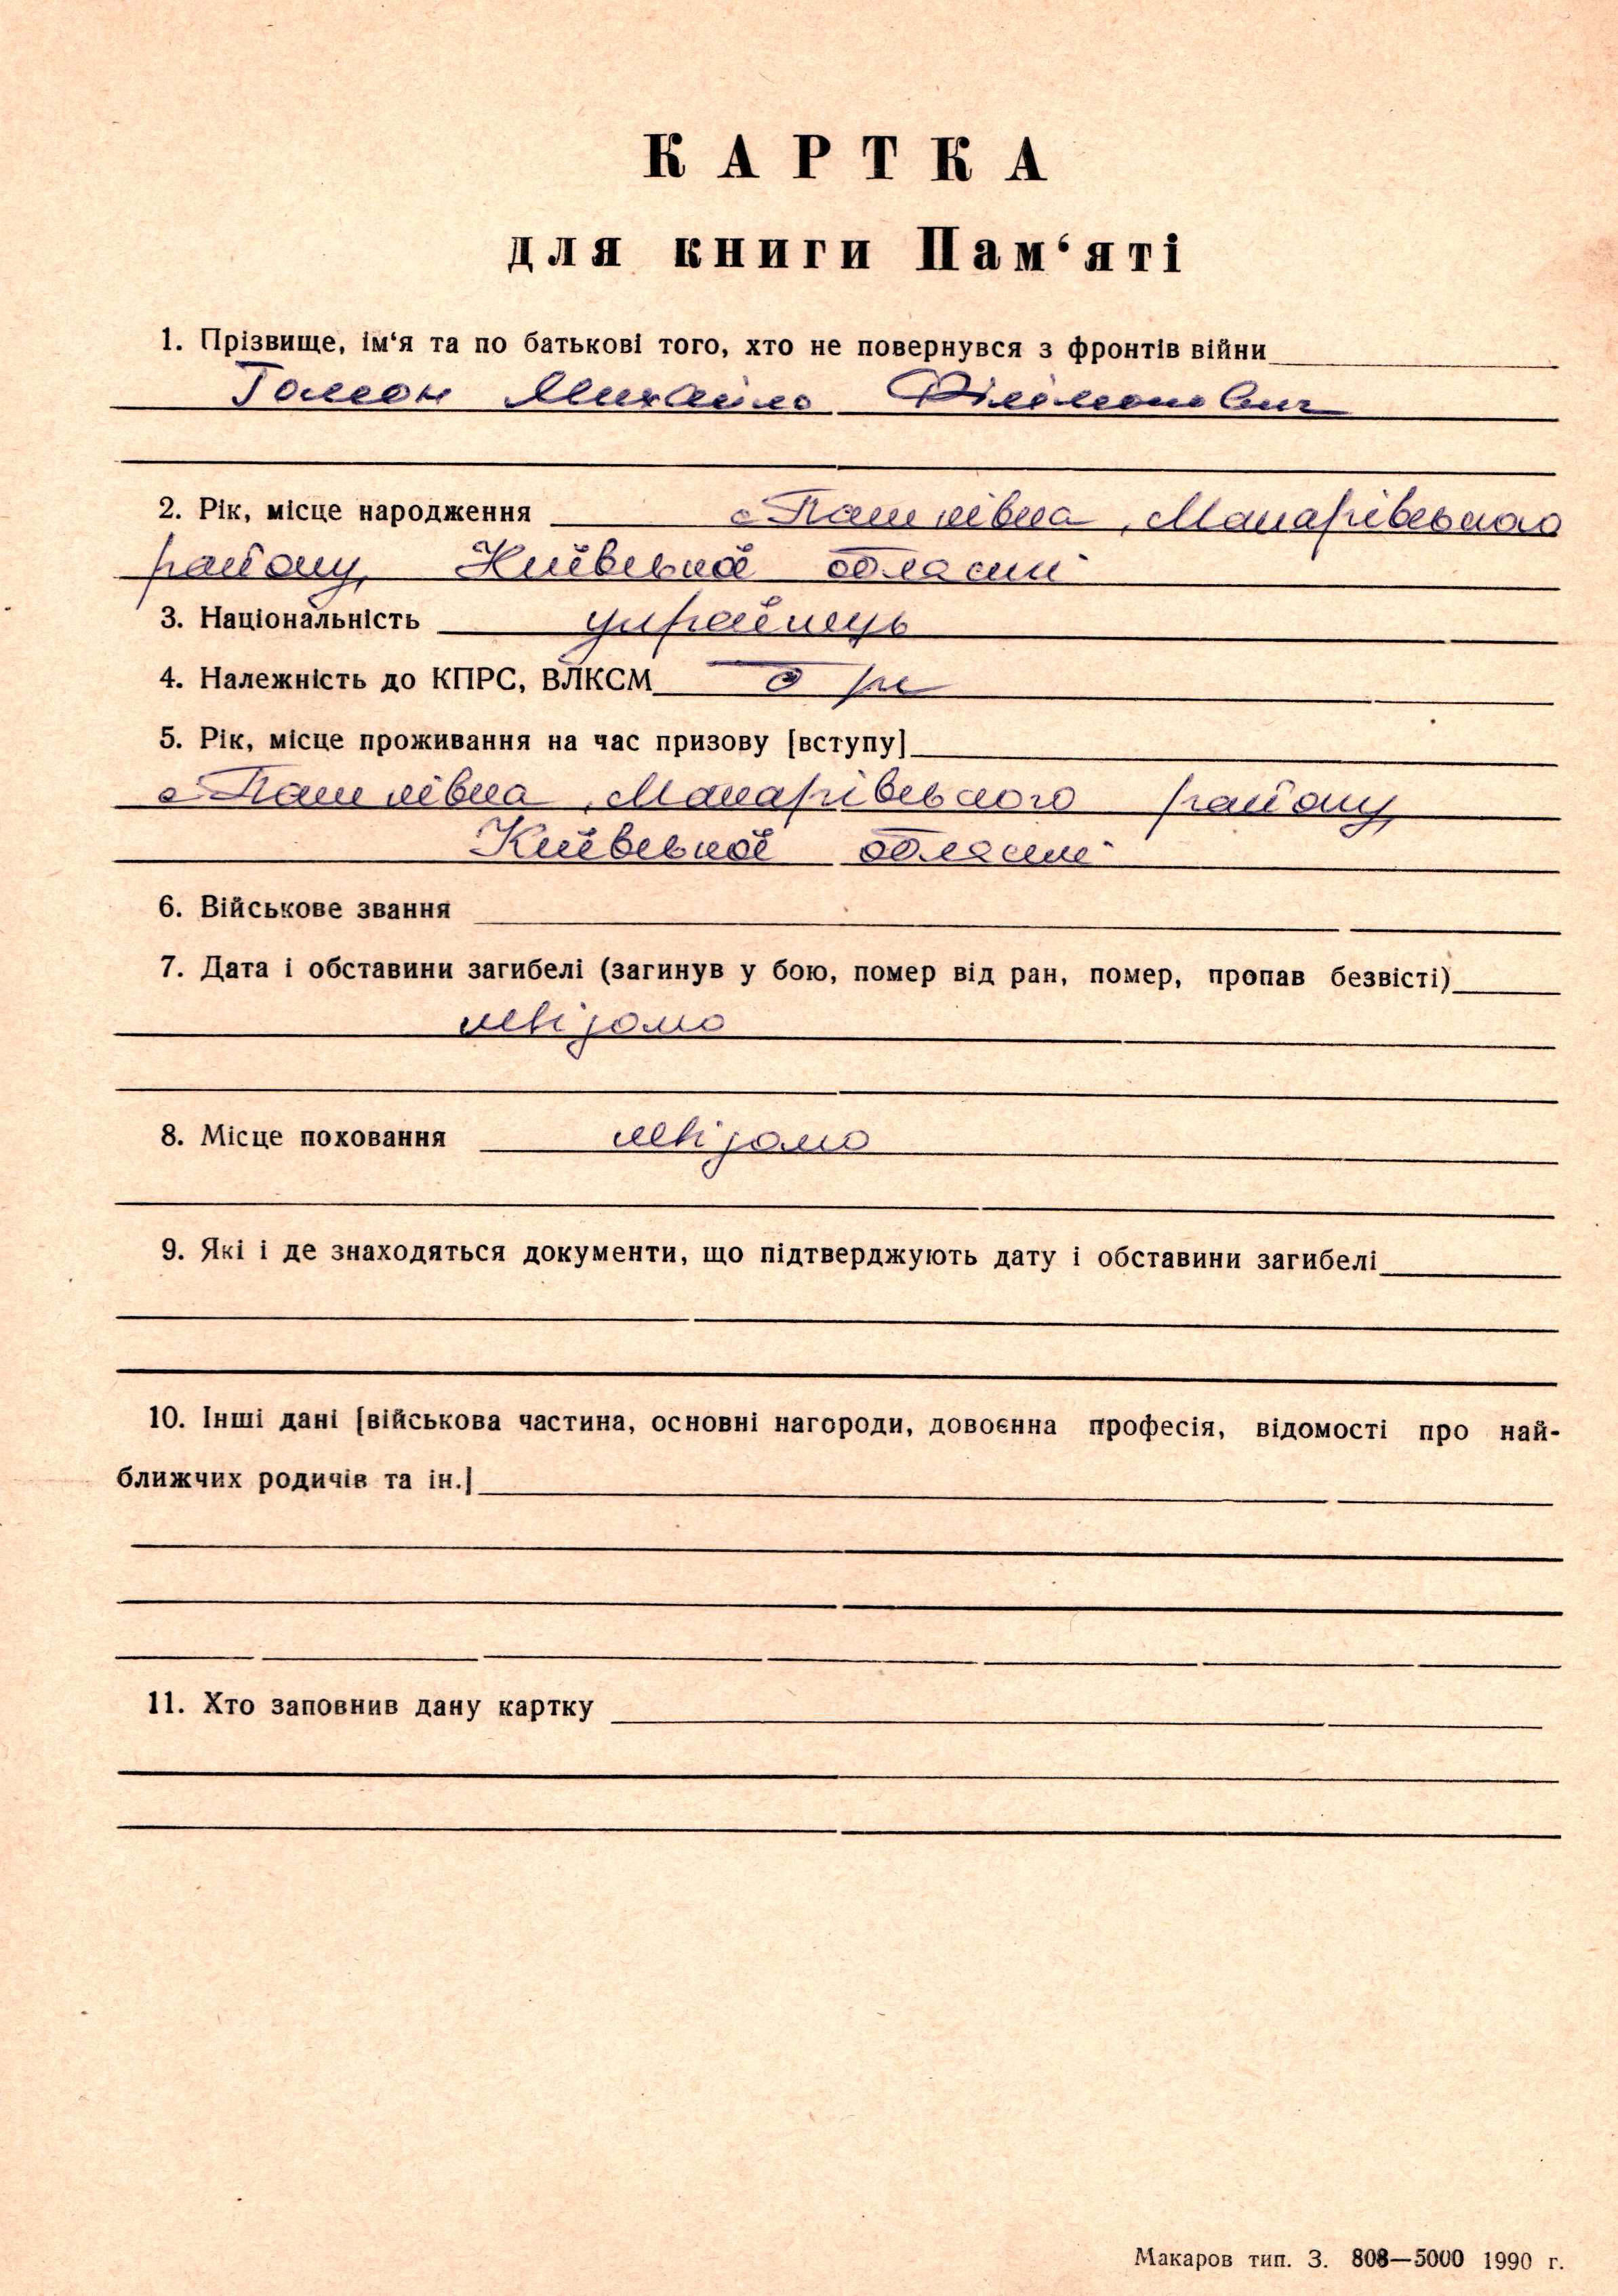 КАРТКА
для книги Пам‘яті
1. Прізвище, ім‘я та по батькові того, хто не повернувся з фронтів війни
Гомон Михайло Філімонович
2. Рік, місце народження с Пашківка, Макарівського
району, Київської області
3. Національність українець
4. Належність до КПРС, ВЛКСМ б/п
5. Рік, місце проживання на час призову [вступу]
с Пашківка, Макарівського району,
Київської області
6. Військове звання
7. Дата і обставини загибелі (загинув у бою, помер від ран, помер, пропав безвісті)
невідомо
8. Місце поховання невідомо
9. Які і де знаходяться документи, що підтверджують дату і обставини загибелі
10. Інші дані [військова частина, основні нагороди, довоєнна професія, відомості про най-
ближчих родичів та ін.]
11. Хто заповнив дану картку
Макаров тип. З. 808—5000 1990 г.